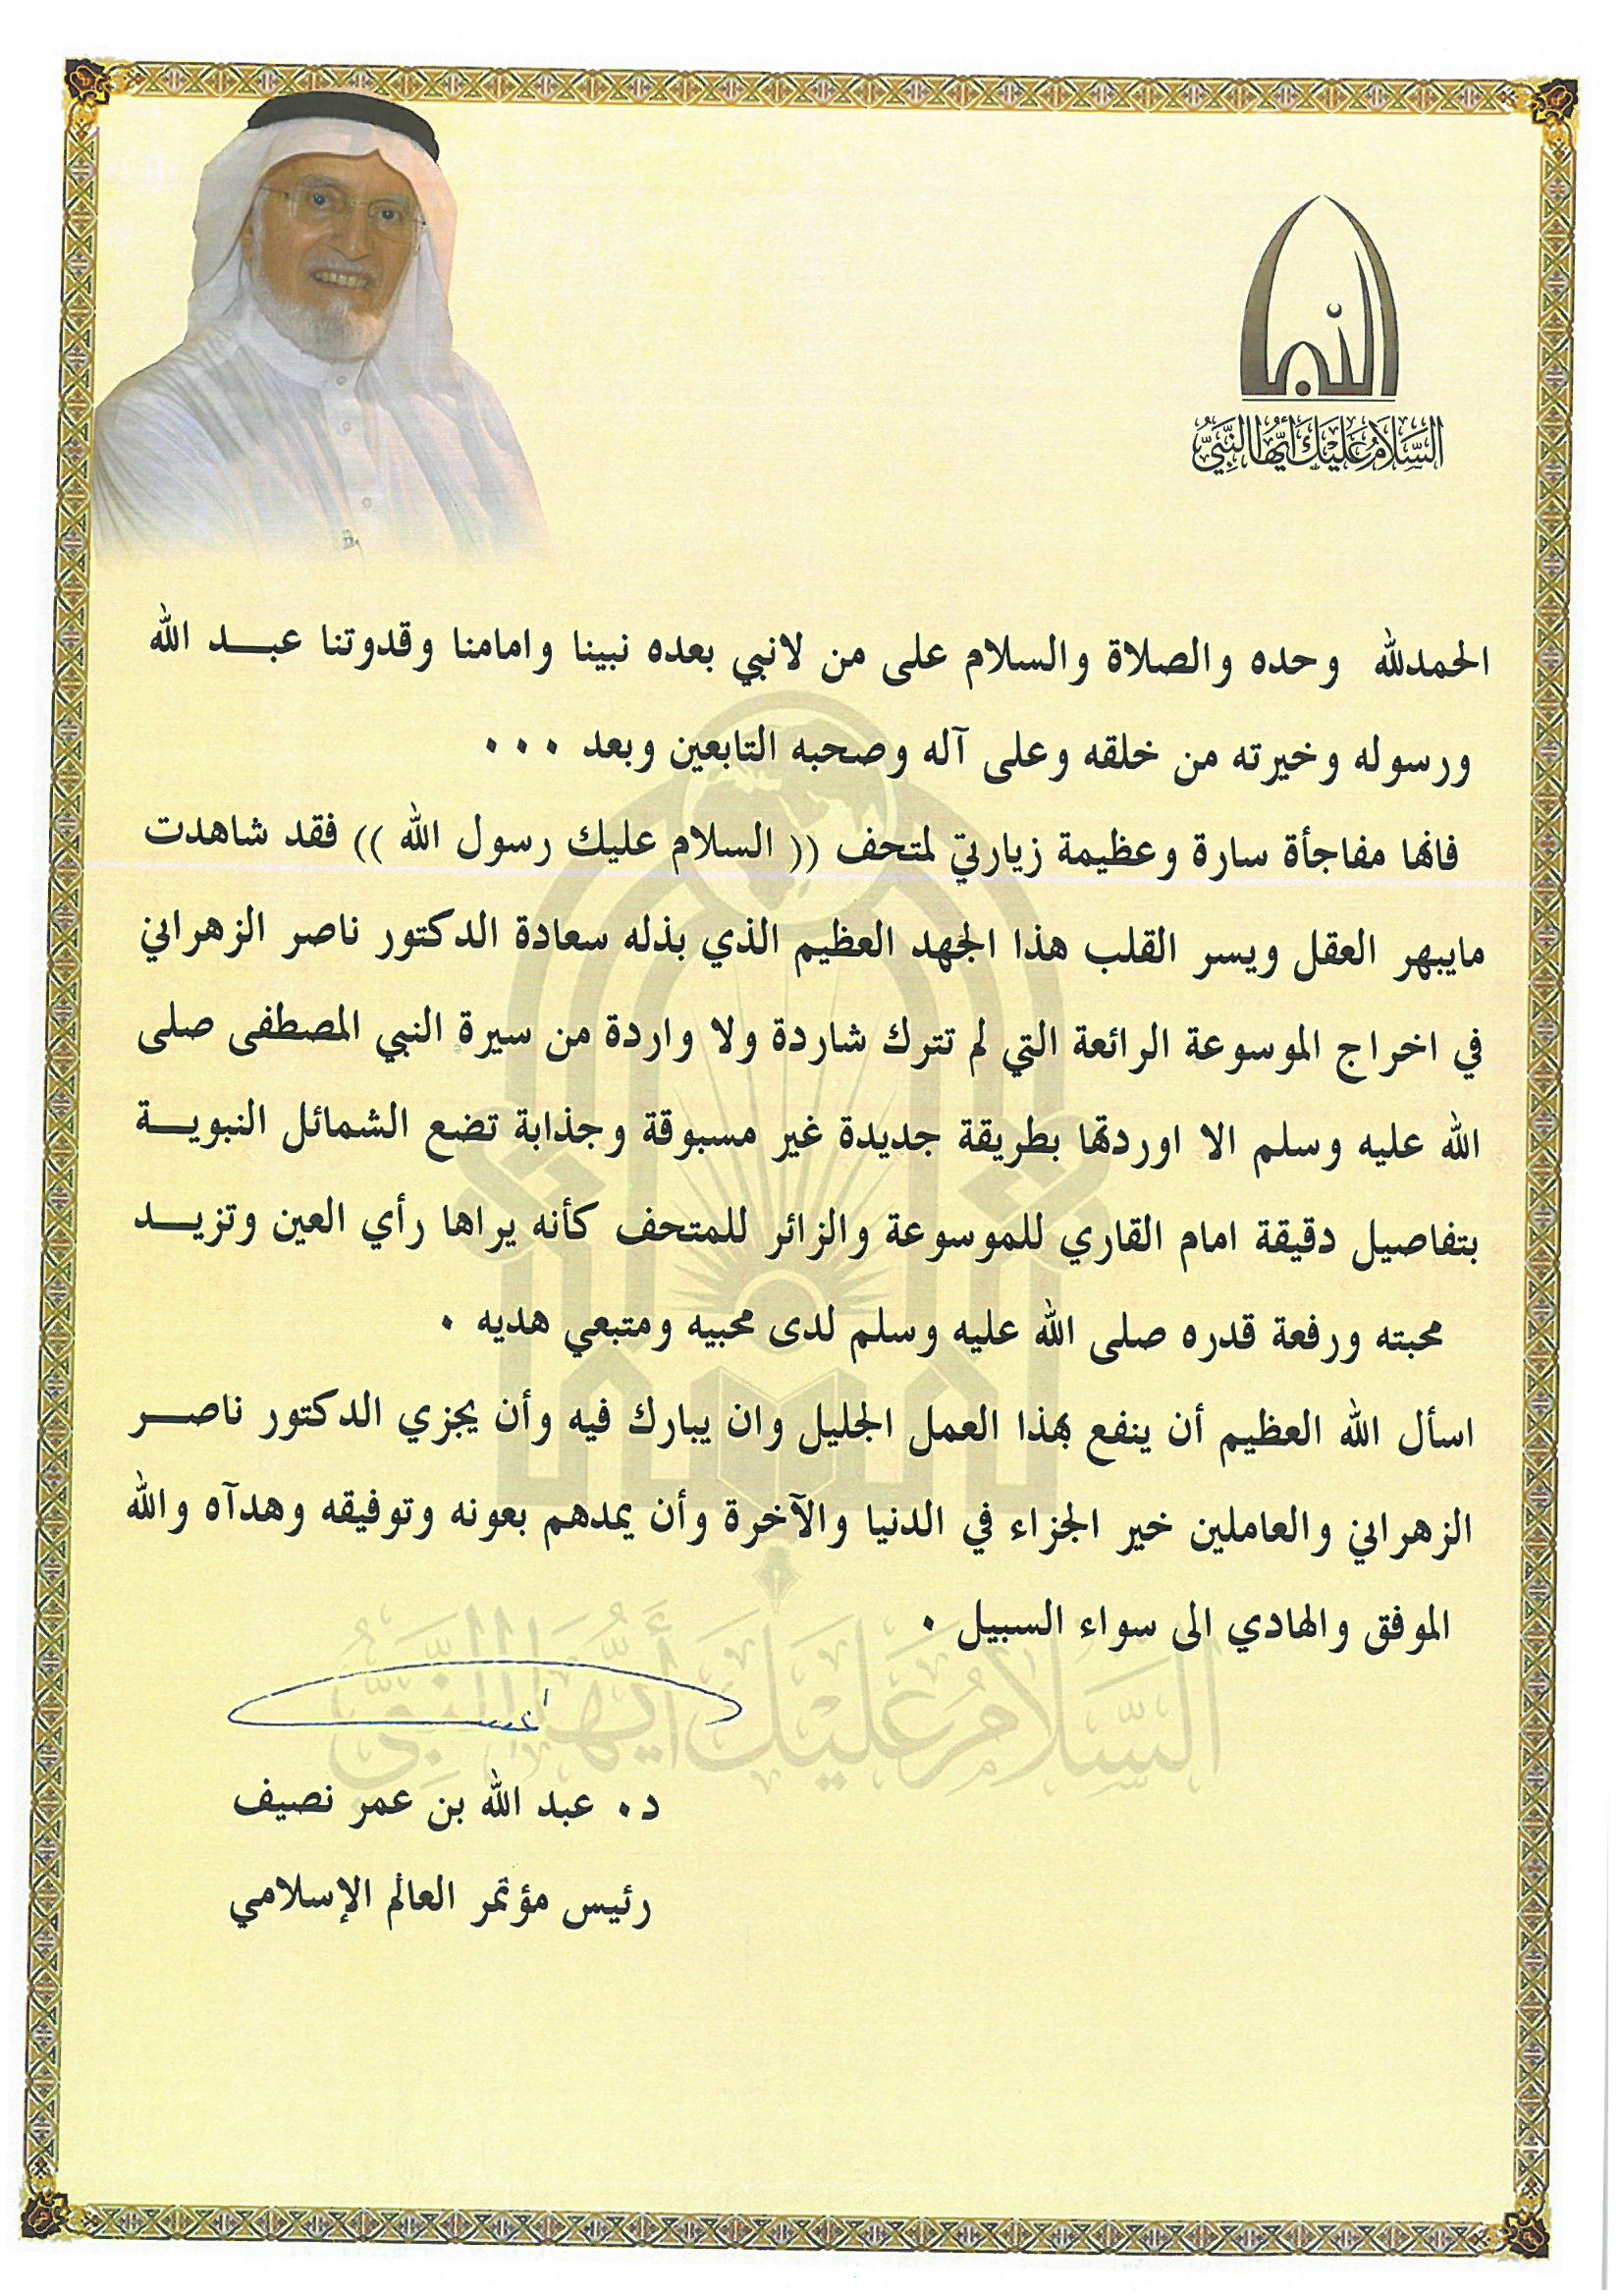 السلام عليك أيها النبي
الحمدلله وحده والصلاة والسلام على من لانبي بعده نبينا وامامنا وقدوتنا عبد الله
ورسوله وخيرته من خلقه وعلى آله وصحبه التابعين وبعد ...
فانها مفاجأة سارة وعظيمة زيارتي لمتحف (( السلام عليك رسول الله )) فقد شاهدت
مايبهر العقل ويسر القلب هذا الجهد العظيم الذي بذله سعادة الدكتور ناصر الزهراني
في اخراج الموسوعة الرائعة التي لم تترك شاردة ولا واردة من سيرة النبي المصطفى صلى
الله عليه وسلم الا اوردتها بطريقة جديدة غير مسبوقة وجذابة تضع الشمائل النبوية
بتفاصيل دقيقة امام القاري للموسوعة والزائر للمتحف كأنه يراها رأي العين وتزيد
محبته ورفعة قدره صلى الله عليه وسلم لدى محبيه ومتبعي هديه .
اسأل الله العظيم أن ينفع بهذا العمل الجليل وان يبارك فيه وأن يجزي الدكتور ناصر
الزهراني والعاملين خير الجزاء في الدنيا والآخرة وأن يمدهم بعونه وتوفيقه وهدآه والله
الموفق والهادي الى سواء السبيل .
السلام عليك أيها النبي
د. عبد الله بن عمر نصيف
رئيس مؤتمر العالم الإسلامي